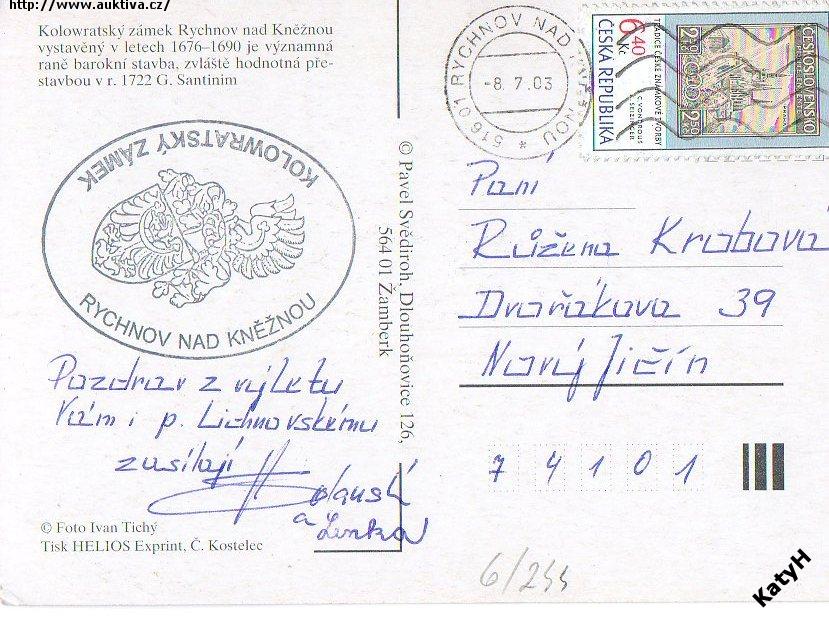 http://www.auktiva.cz/
Kolowratský zámek Rychnov nad Kněžnou
vystavěný v letech 1676–1690 je významná
raně barokní stavba, zvláště hodnotná pře-
stavbou v r. 1722 G. Santinim
KOLOWRATSKÝ ZÁMEK
RYCHNOV NAD KNĚŽNOU
Pozdrav z výletu
Vám i p. Lichnovskému
zasílají
a Lenka
© Foto Ivan Tichý
Tisk HELIOS Exprint, Č. Kostelec
© Pavel Svědiroh, Dlouhoňovice 126,
564 01 Žamberk
516 01 RYCHNOV NAD KNĚŽNOU
-8.7.03
6,40 Kč
ČESKÁ REPUBLIKA
TRADICE ČESKÉ ZNÁMKOVÉ TVORBY
ČESKOSLOVENSKO
2·50
Paní
Růžena Krabová
Dvořákova 39
Nový Jičín
74101
6/244
KatyH